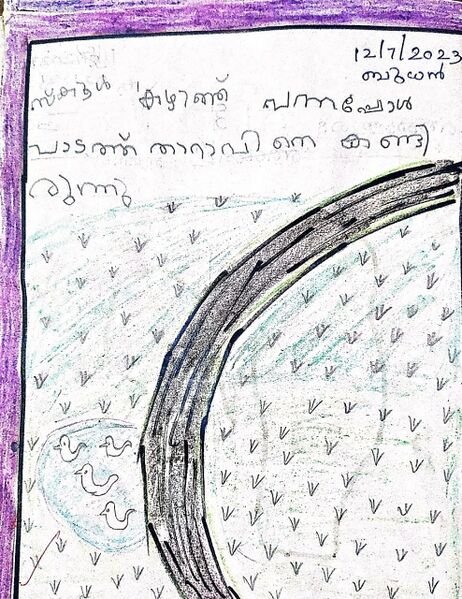 12/7/2023
ബുധൻ
സ്കൂൾ കഴിഞ്ഞ് വന്നപ്പോൾ
പാടത്ത് താറാവിനെ കണ്ടി
രുന്നു